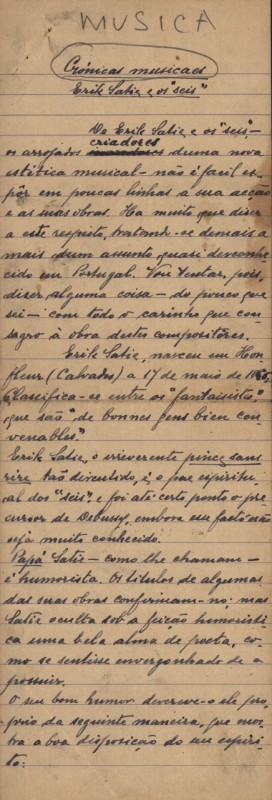 MUSICA
Crónicas musicaes
Erik Satie e os "seis"
De Erik Satie e os "seis" —
criadores
os arrojados duma nova
estética musical — não é facil ex-
pôr em poucas linhas a sua acção
e as suas obras. Ha muito que dizer
a este respeito, tratando-se demais a
mais dum assunto quasi desconhe-
cido em Portugal. Vou tentar, pois,
dizer alguma coisa — do pouco que
sei — com todo o carinho que con-
sagro à obra destes compositôres.
Erik Satie, nasceu em Hon-
fleur (Calvados) a 17 de maio de
Classifica-se entre os "fantaisistes"
que são "de bonnes gens bien con-
venables".
Erik Satie, o irreverente pince sans
rire tão divertido, é o pae espiritu-
al dos "seis" e foi até certo ponto o pre-
cursor de Debussy, embora esse facto não
seja muito conhecido.
Papá Satie — como lhe chamam —
é humorista. Os titulos de algumas
das suas obras confirmam-no; mas
Satie oculta sob a feição humoristi-
ca uma bela alma de poeta, co-
mo se sentisse envergonhado de a
possuir.
O seu bom humor descreve-o ele pro-
prio da seguinte maneira, que mos-
tra a boa disposição do seu espiri-
to: